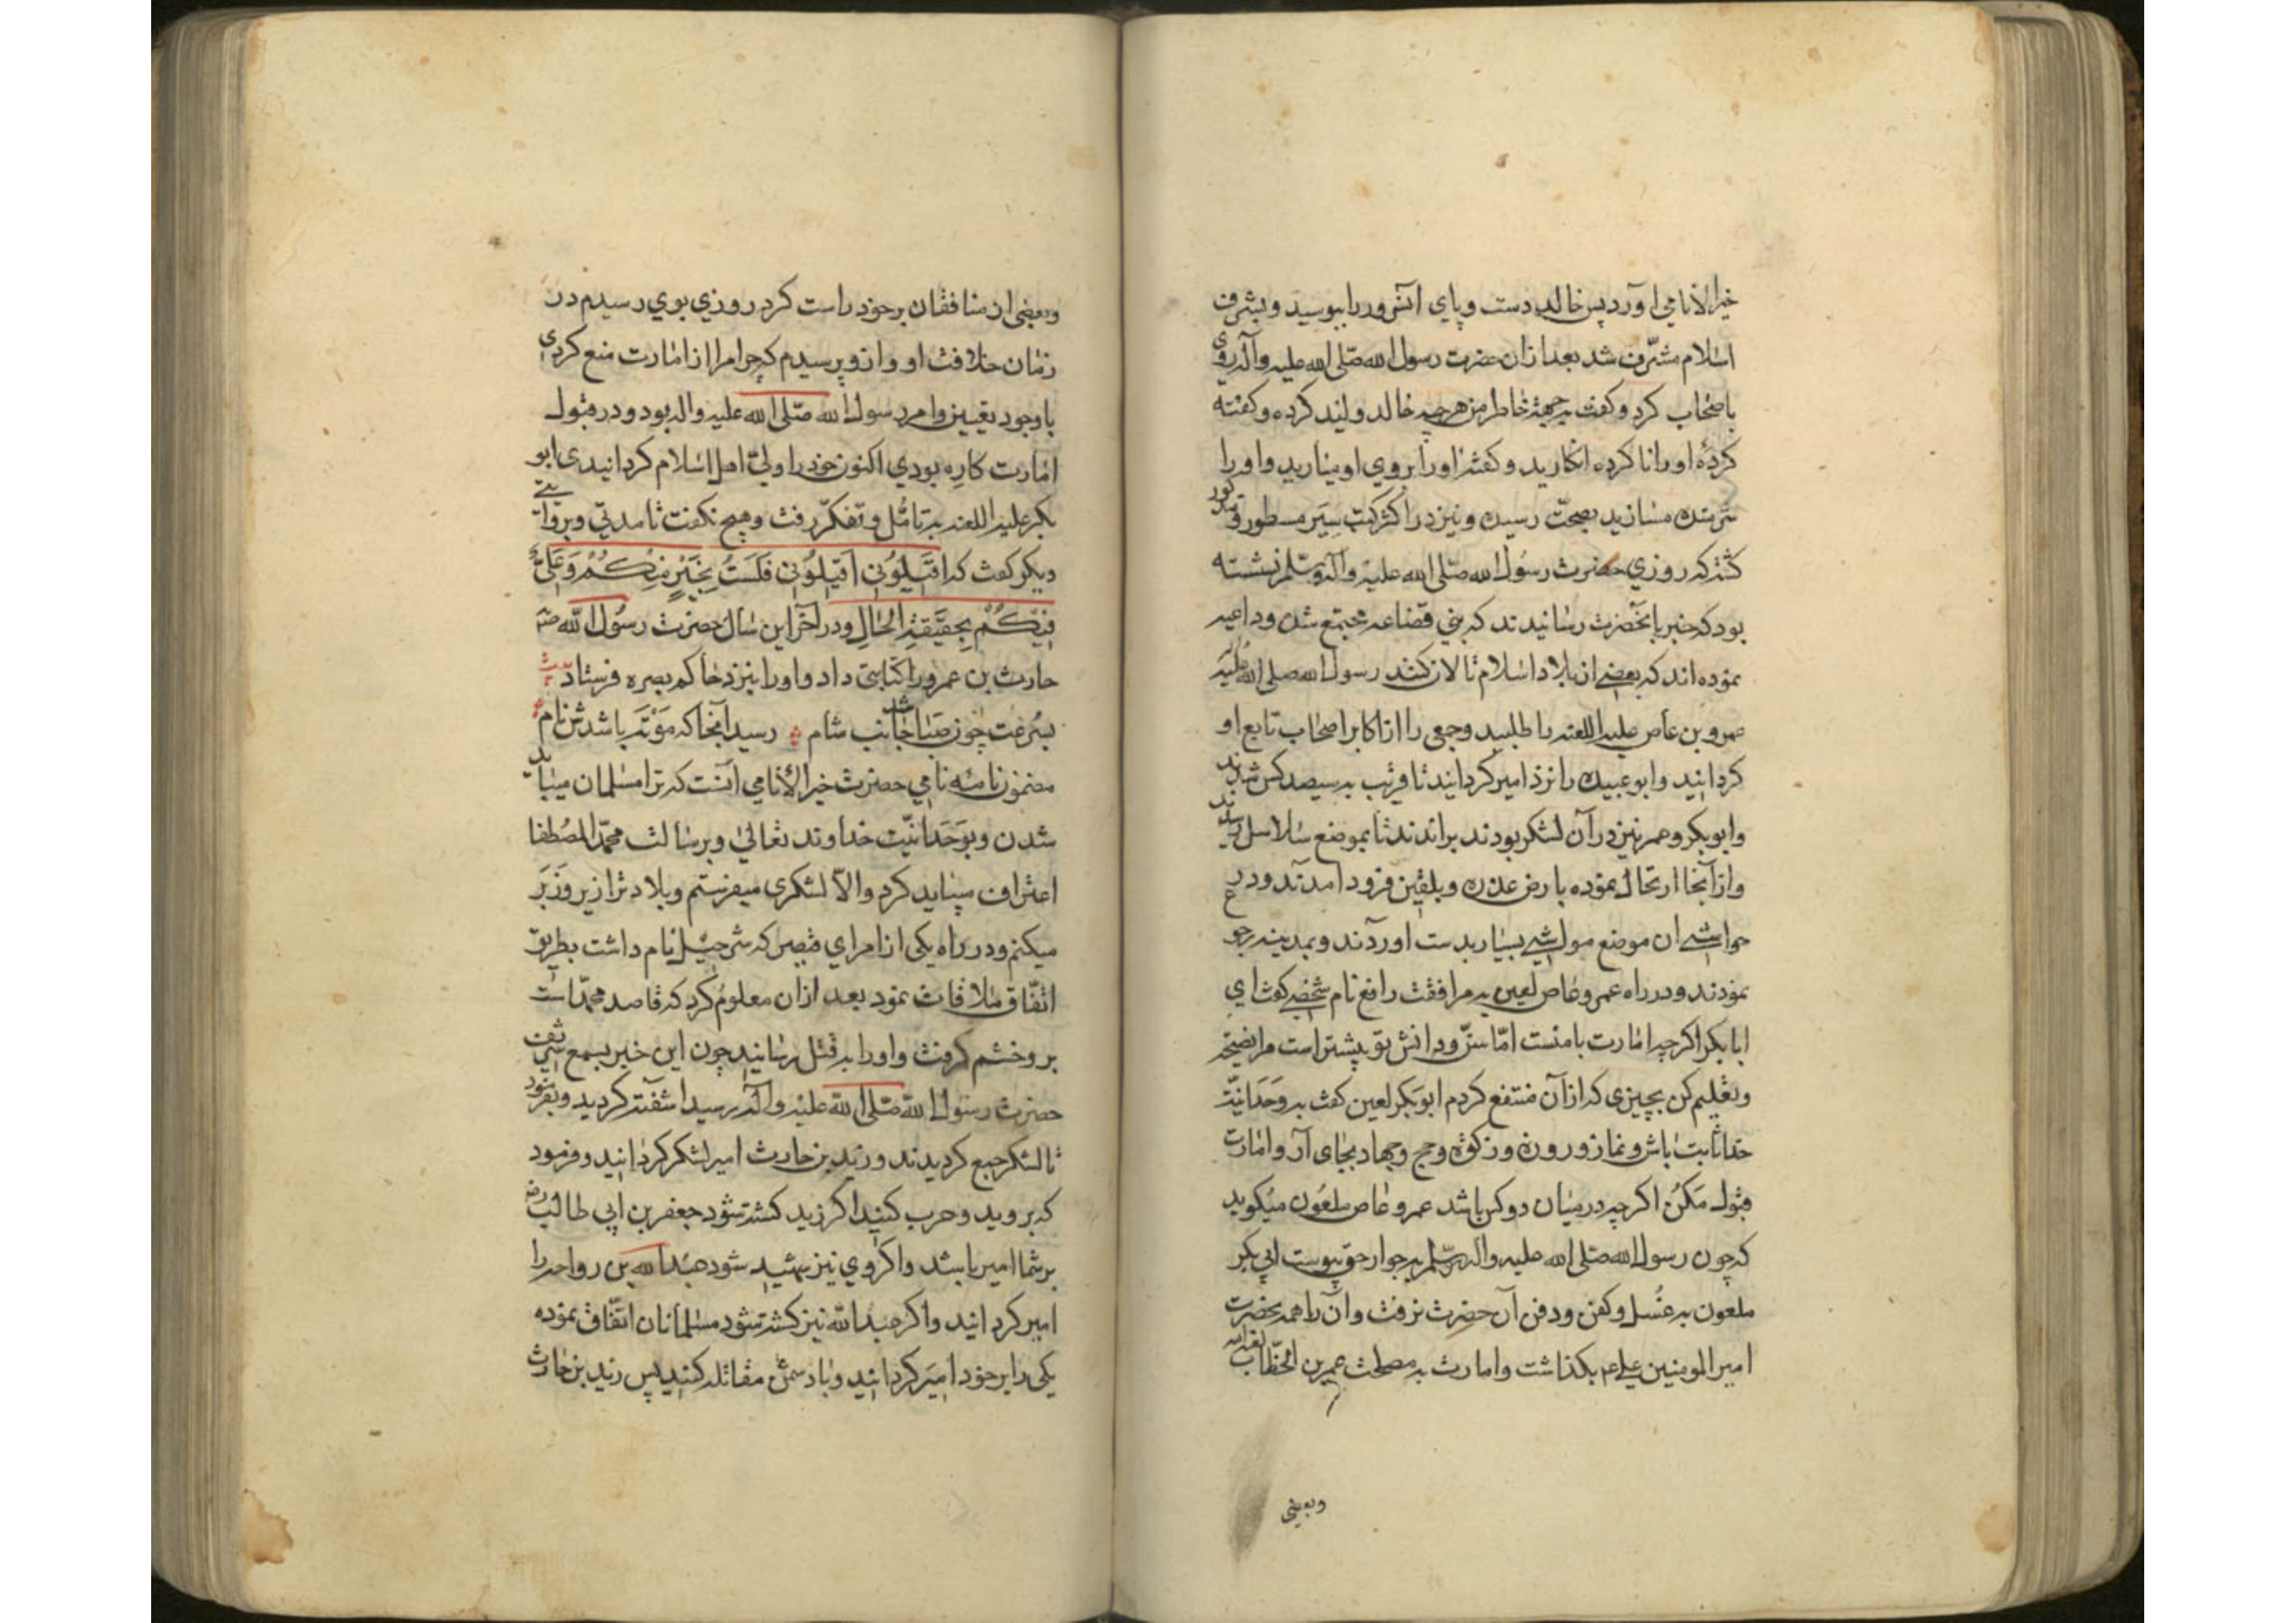 خیر الانامی آورد پس خالد دست و پای آنسرور را ببوسید و بشرف
اسلام مشرّف شد بعد از ان حضرت رسول الله صلّی الله علیه وآله روی
باصحاب کرد و کفت بجهة خاطر من هر چه خالد ولید کرده و کفته
کردهٔ او را ناکرده انکارید و کفتهٔ او را بروی او میارید و او را
شرمنده مسازید بصحّت رسیده و نیز در اکثر کتب سِیَر مسطور و مذکور
کشته که روزی حضرت رسُول الله صلّی الله علیه وآله وسلّم نشسته
بود که خبر بانحضرت رسانیدند که بنی قضاعه مجتمع شده و داعیه
نموده اند که بعضی از بلاد اسلام تالان کنند رسول الله صلی الله علیه
عمرو بن عاص علیه اللعنه را طلبید و جمعی را از اکابر اصحاب تابع او
کردانید و ابو عبیده را نزد امیر کردانید تا قریب به سیصد کس شدند
و ابوبکر و عمر نیز در آن لشکر بودند براندند تا بموضع سلاسل رسیدند
و از آنجا ارتحال نموده بارض عذره و بلقین فرود آمدند و در
حواشی ان موضع مواشی بسیار بدست اوردند و بمدینه رجوع
نمودند و در راه عمرو عاص لعین به مرافقت رافع نام شخصی کفت ای
ابا بکر اکرچه امارت بامنست امّا سنّ و دانش تو بیشتر است مرا نصیحة
و تعلیم کن بچیزی که از آن منتفع کردم ابوبکر لعین کفت به وحدانیّة
خدا ثابت باش و نماز و روزه و زکوة و حج و جهاد بجای آر و امارت
قبول مکن اکرچه در میان دو کس باشد عمرو عاص ملعُون میکوید
که چون رسول الله صلّی الله علیه واله وسلّم به جوار حق پیوست ابی بکر
ملعون به غُسل و کفن و دفن آن حضرت نرفت و آن را همه بحضرت
امیر المومنین علی ع م بکذاشت و امارت به مصلحت عمر بن الخطّاب لعنه الله
وبعضی
وبعضی از منافقان بر خود راست کرد روزی بوی رسیدم در
زمان خلافت او و از و پرسیدم که چرا مرا از امارت منع کردی
با وجود تعیین و امر رسول الله صلّی الله علیه واله بود و در قبول
امارت کاره بودی اکنون خود را ولیّ اهل اسلام کردانیدی ابو
بکر علیه اللعنه به تامّل و تفکّر رفت و هیچ نکفت تا مدتی و بروایتی
دیکر کفت که اَقیلُونی اَقیلُونی فَلَستُ بِخَیْرٍ مِنْکُمْ وَعَلِیٌّ
فِیْکُمْ بِحقیقةِ الحَالِ و در آخر این سال حضرت رسُول الله صلّم
حارث بن عمرو را کتابتی داد و او را بنزد حاکم بصره فرستاد بیت
بسُرعت چون صَبا شد جانب شام رسید آنجا که مَوْتَه باشدش نام
مضمون نامه نامی حضرت خیر الأنامی آنست که ترا مسلمان میباید
شدن و بوَحدانیّت خداوند تعالیٰ و برسالت محمّد المصُطفا
اعتراف میباید کرد والّا لشکری میفرستم و بلاد ترا زیر و زَبَر
میکنم و در راه یکی از امرای قیصر که شرحبیل نام داشت بطریق
اتفّاق ملاقات نمود بعد از ان معلوم کرد که قاصد محمّد است
بر و خشم کرفت و او را به قتل رسانید چون این خبر بسمع شریف
حضرت رسول الله صلّی الله علیه واله رسید اشفته کردید و بفرمود
تا لشکر جمع کردیدند و زید بن حارث امیر لشکر کردانید و فرمود
که بروید و حرب کنید اکر زید کشته شود جعفر بن ابی طالب رض
بر شما امیر باشد و اکر وی نیز شهید شود عبد الله بن رواحه را
امیر کردانید و اکر عبد الله نیز کشته شود مسلمانان اتّفاق نموده
یکی را بر خود امیر کردانید و با دشمن مقاتله کنید پس زید بن حارث